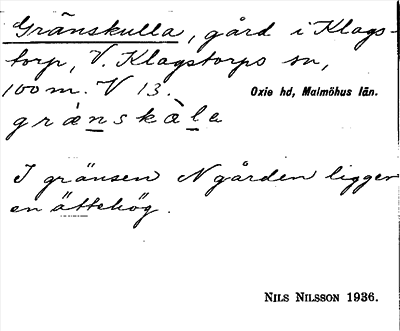 Gränskulla, gård i Klags-
torp, V. Klagstorps sn,
100 m. V 13.
Oxie hd, Malmöhus län.
grä̀nskàla
I gränsen N gården ligger
en ättehög.
NILS NILSSON 1936.